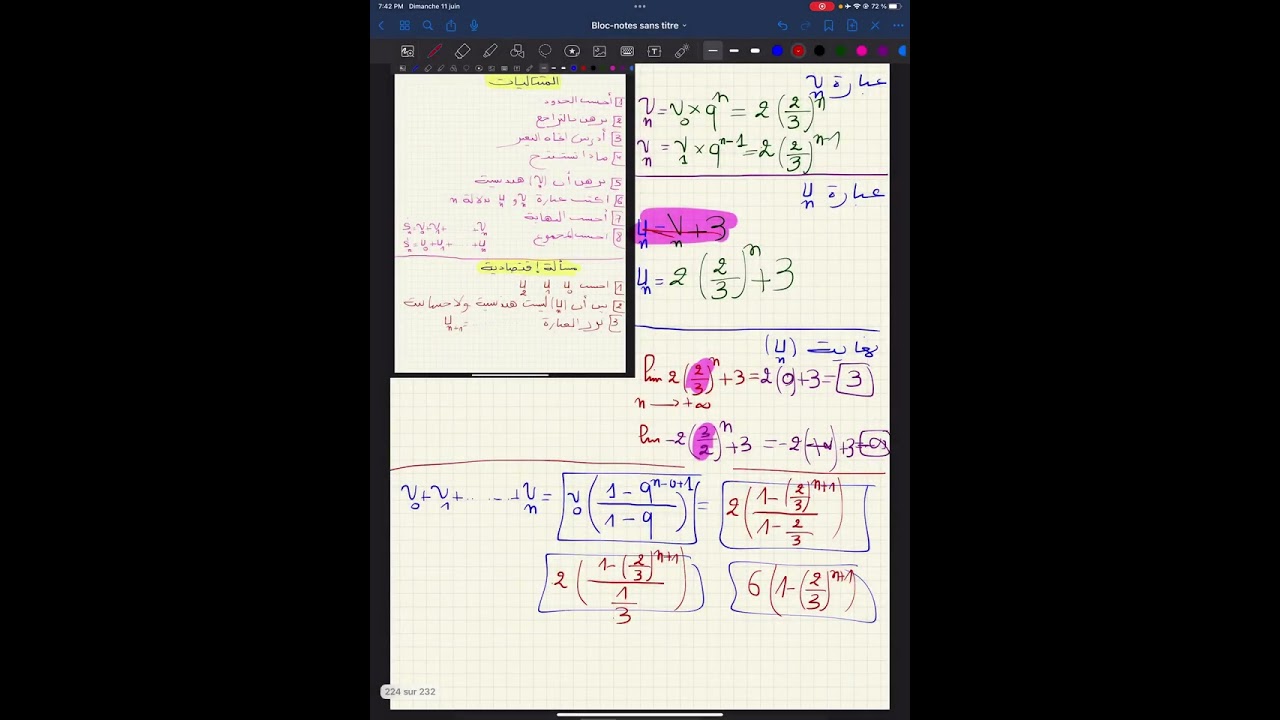 7:42 PM Dimanche 11 juin
72 %
Bloc-notes sans titre
المتتاليات
1 أحسب الحدود
2 برهن بالتراجع
3 أدرس اتجاه التغير
4 ماذا تستنتج
5 برهن أن (v_n) هندسية
6 اكتب عبارة v_n و u_n بدلالة n
7 أحسب النهاية
8 احسب المجموع
S_n = v_0 + v_1 + ...... + v_n
S_n = u_0 + u_1 + ...... + u_n
مسألة إقتصادية
1 احسب u_0 u_1 u_2
2 بين أن (u_n) ليست هندسية ولا حسابية
3 برر العبارة u_{n+1} =
عبارة v_n
v_n = v_0 × q^n = 2(2/3)^n
v_n = v_1 × q^{n-1} = 2(2/3)^{n-1}
عبارة u_n
u_n = v_n + 3
u_n = 2(2/3)^n + 3
نهاية (u_n)
lim 2(2/3)^n + 3 = 2(0) + 3 = 3
n → +∞
lim -2(3/2)^n + 3 = -2(+∞) + 3 = -∞
v_0 + v_1 + ...... + v_n = v_0((1 - q^{n-0+1})/(1 - q)) = 2((1 - (2/3)^{n+1})/(1 - 2/3))
2((1 - (2/3)^{n+1})/(1/3)) 6(1 - (2/3)^{n+1})
224 sur 232